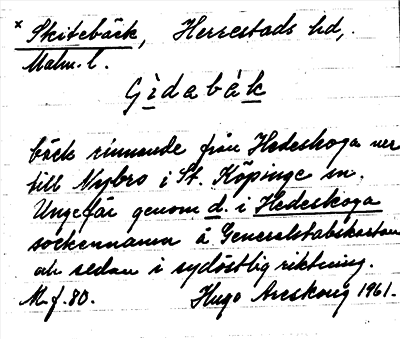 x Skitebäck, Herrestads hd,
Malm. l.
Gìdabák
bäck rinnande från Hedeskoga ner
till Nybro i St. Köpinge sn.
Ungefär genom d. i Hedeskoga
sockennamn å Generalstabskartan
och sedan i sydöstlig riktning.
M.f. 80. Hugo Areskoug 1961.